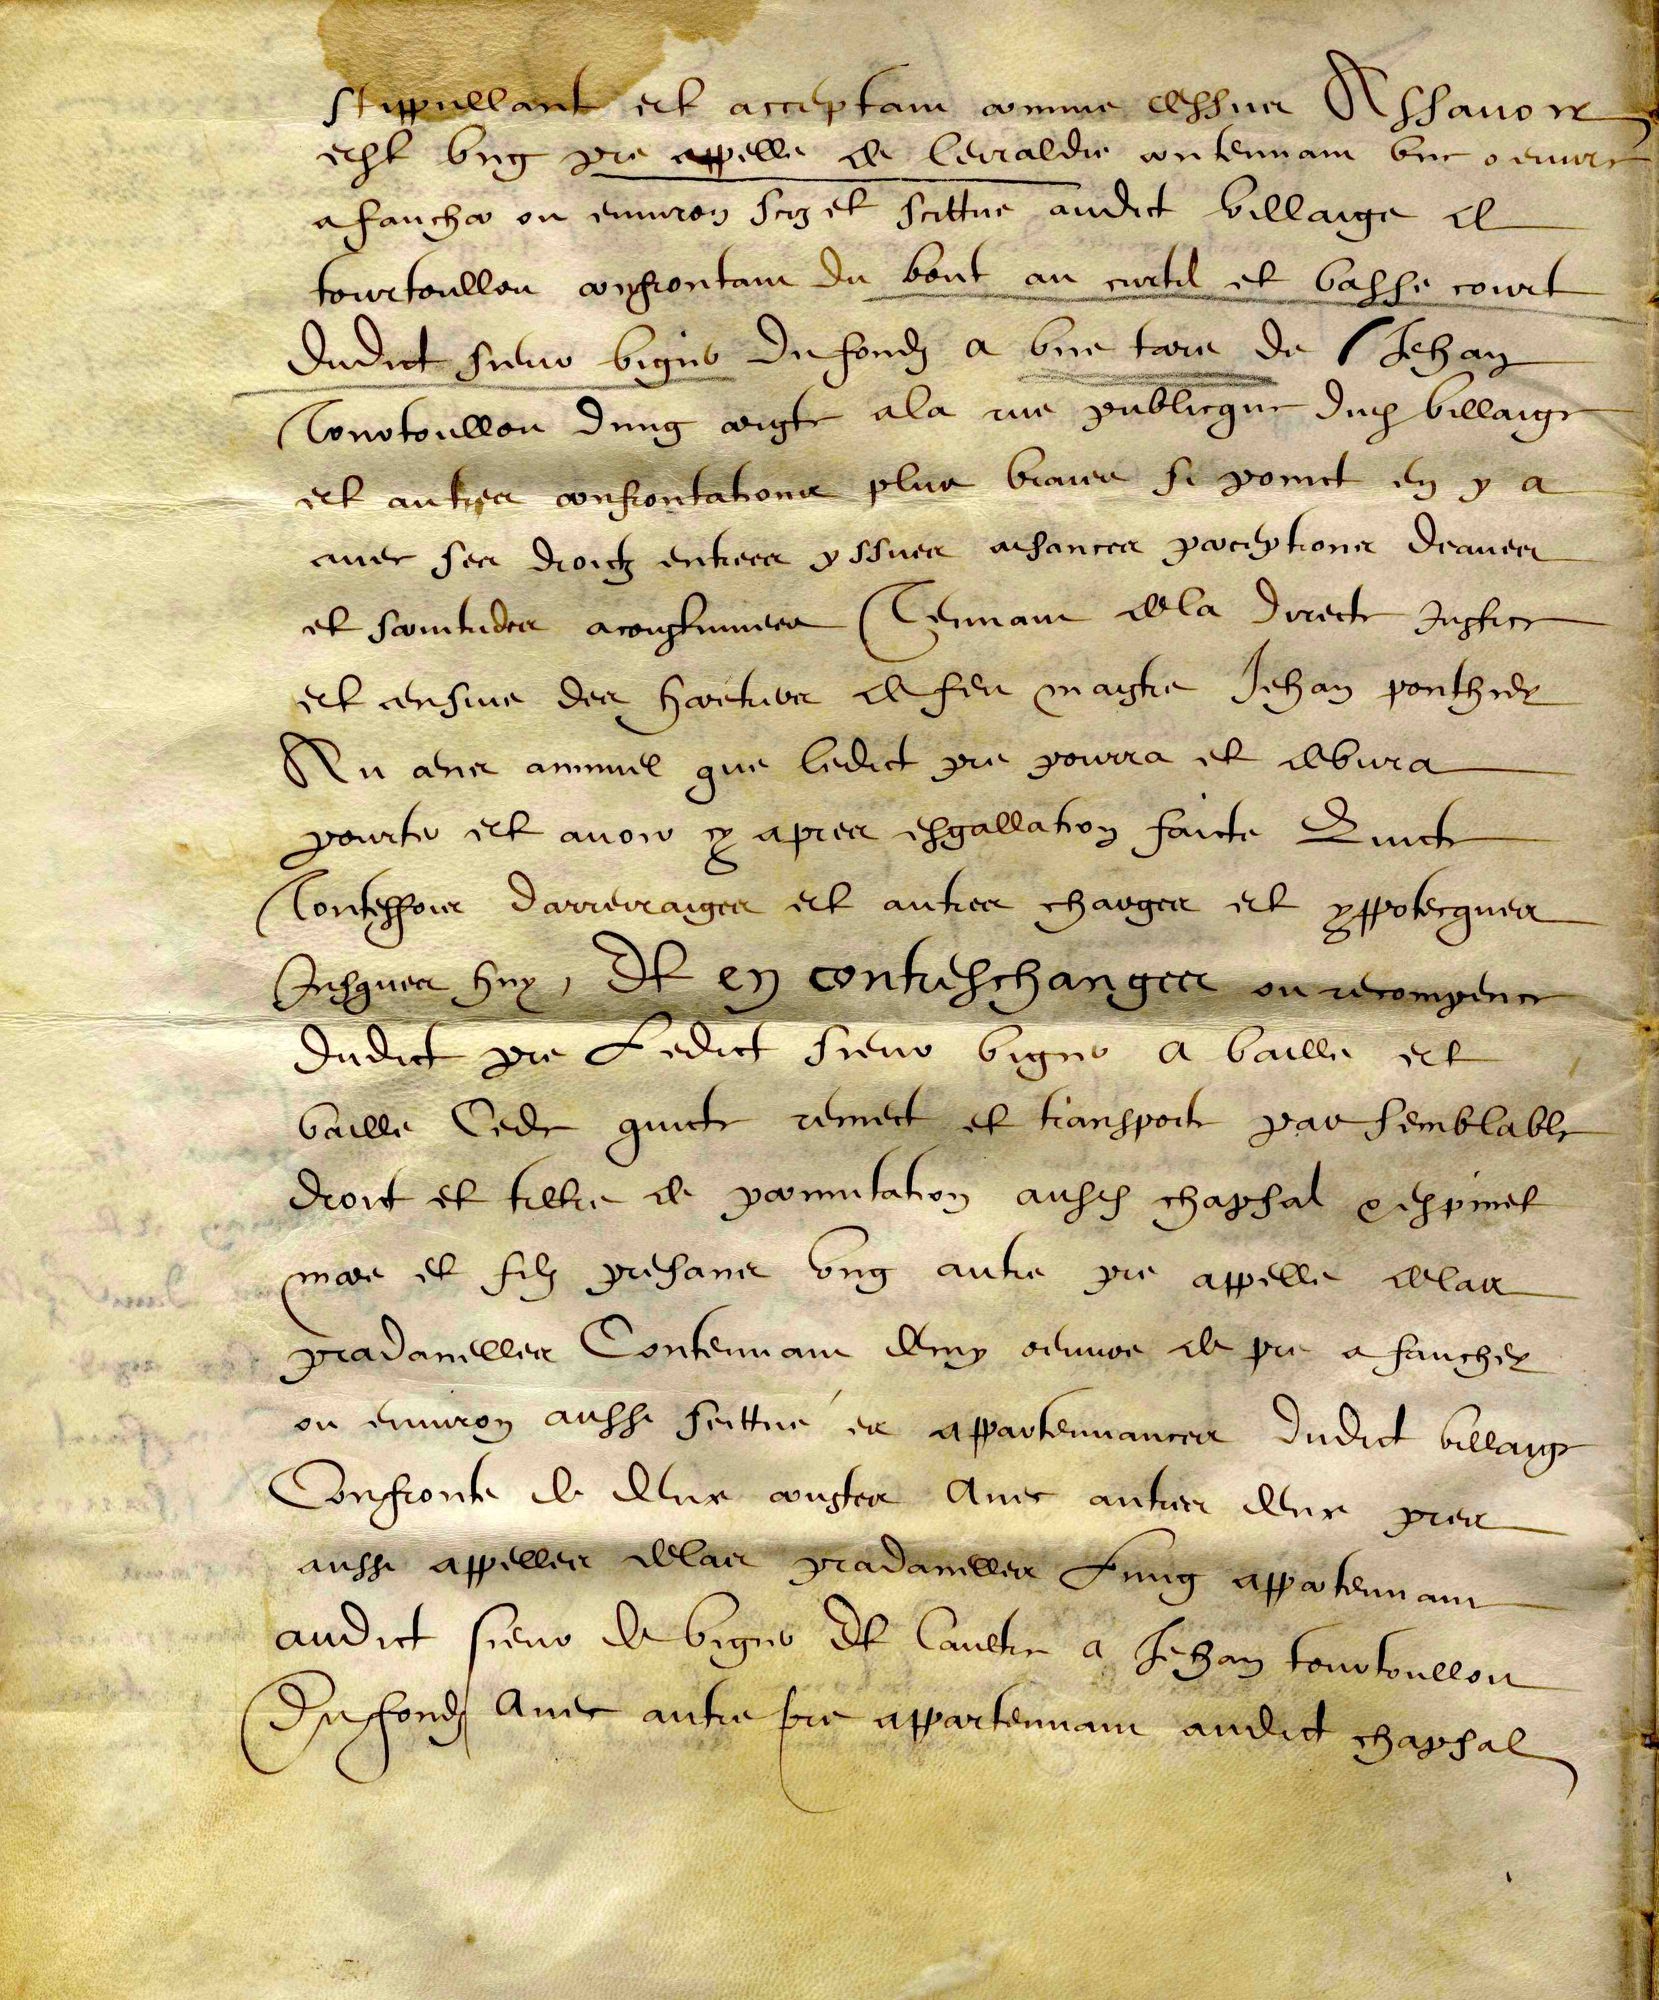 stippullant et acceptant comme dessus Assavoir
est ung pre appelle de leiraldie contennant une oeuvre
a faucher ou environ sciz et scittue audict villaige de
tourtoullou confrontant du bout au curtil et basse court
dudict sieur vigier du fondz a une terre de Jehan
Tourtoullou dung coigte a la rue publicque dud villaige
et autres confrontations plus vraies si poinct en y a
avec ses droictz entrees yssues aisances parceptions deaues
et servitudes acoustumees Tennant de la directe justice
et censive des heretiers de feu maistre Jehan ponthier
Au cens annuel que ledict pre pourra et debvra
pourter et avoir cy apres esgallation faicte Quicte
Toutesfois darreiraiges et autres charges et yppotecques
Jusques huy, Et en contreschanges ou recompence
dudict pre Ledict sieur vigier a baille et
baille Cede quicte remect et transporte par semblable
droict et tiltre de permutation ausd chapsal & espinet
mere et filz presans ung autre pre appelle de las
pradanelles Contennant demy oeuvre de pre a faucher
ou environ aussi scittue es appartennances dudict villaige
Confronte de deux coustes avec autres deux pres
aussi appelles de las pradanelles Lung appartennant
audict sieur de vigier Et laultre a Jehan tourtoullou
Du fondz avec autre pre appartennant audict chapsal